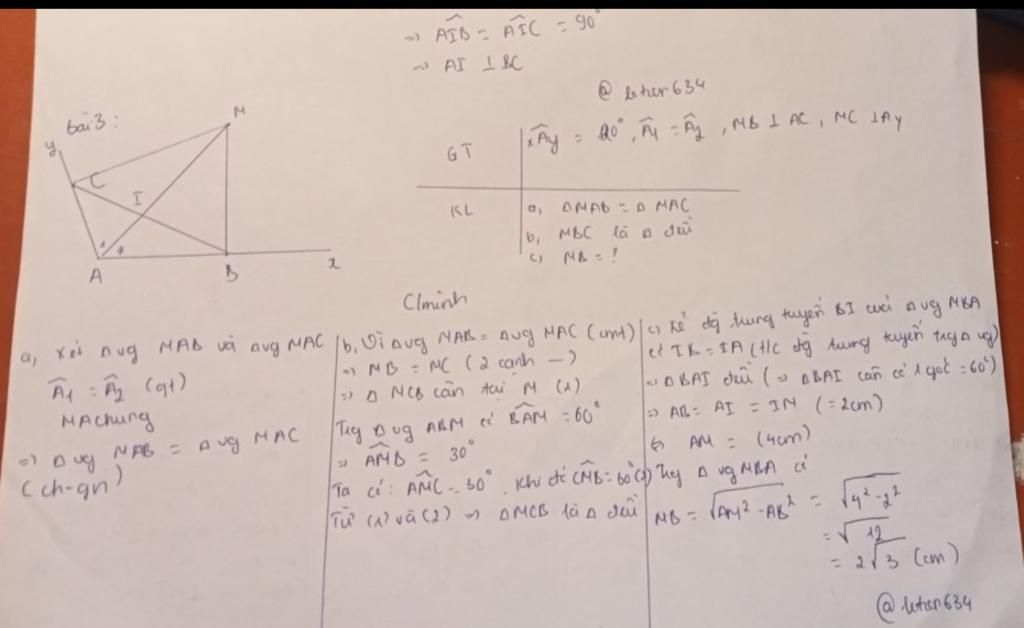 => AIB = AIC = 90°
=> AI ⊥ BC
@ letien634
bài 3:
M
y
C
I
A
B
x
GT
xAy = 120°, A1 = A2, MB ⊥ AC, MC ⊥ Ay
KL
a, ΔMAB = Δ MAC
b, MBC là Δ đều
c, MB = ?
C/minh
a, Xét Δ vg MAB và Δvg MAC
A1 = A2 (gt)
MA chung
=> Δ vg MAB = Δ vg MAC
(ch-gn)
b, Vì Δvg MAB = Δvg MAC (cmt)
=> MB = MC (2 cạnh -)
=> Δ MCB cân tại M (1)
Trg Δ vg ABM có BAM = 60°
=> AMB = 30°
Ta có: AMC = 30°. Khi đó CMB = 60° (2)
Từ (1) và (2) => ΔMCB là Δ đều
c, Kẻ đg trung tuyến BI của Δ vg MBA
có IB = IA (t/c đg trung tuyến trg Δ vg)
=> ΔBAI đều (=> ΔBAI cân có 1 góc = 60°)
=> AB = AI = IM (= 2cm)
AM = (4cm)
Trg Δ vg MBA có
MB = √AM² - AB² = √4² - 2²
= √12
= 2√3 (cm)
@ letien634